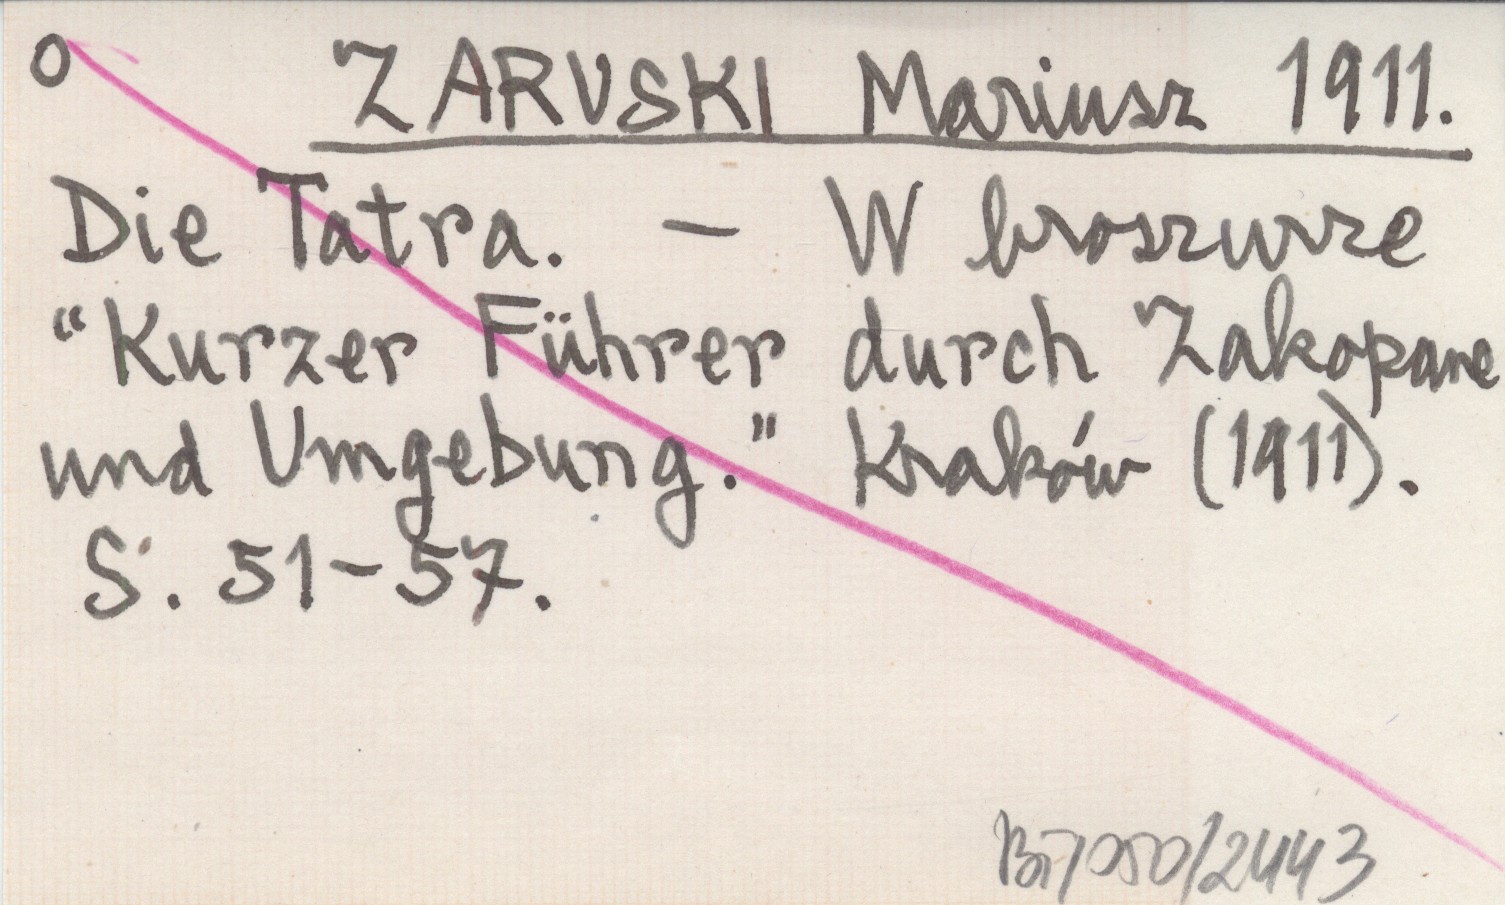 O ZARUSKI Mariusz 1911.
Die Tatra. – W broszurze
“Kurzer Führer durch Zakopane
und Umgebung.” Kraków (1911).
S. 51–57.